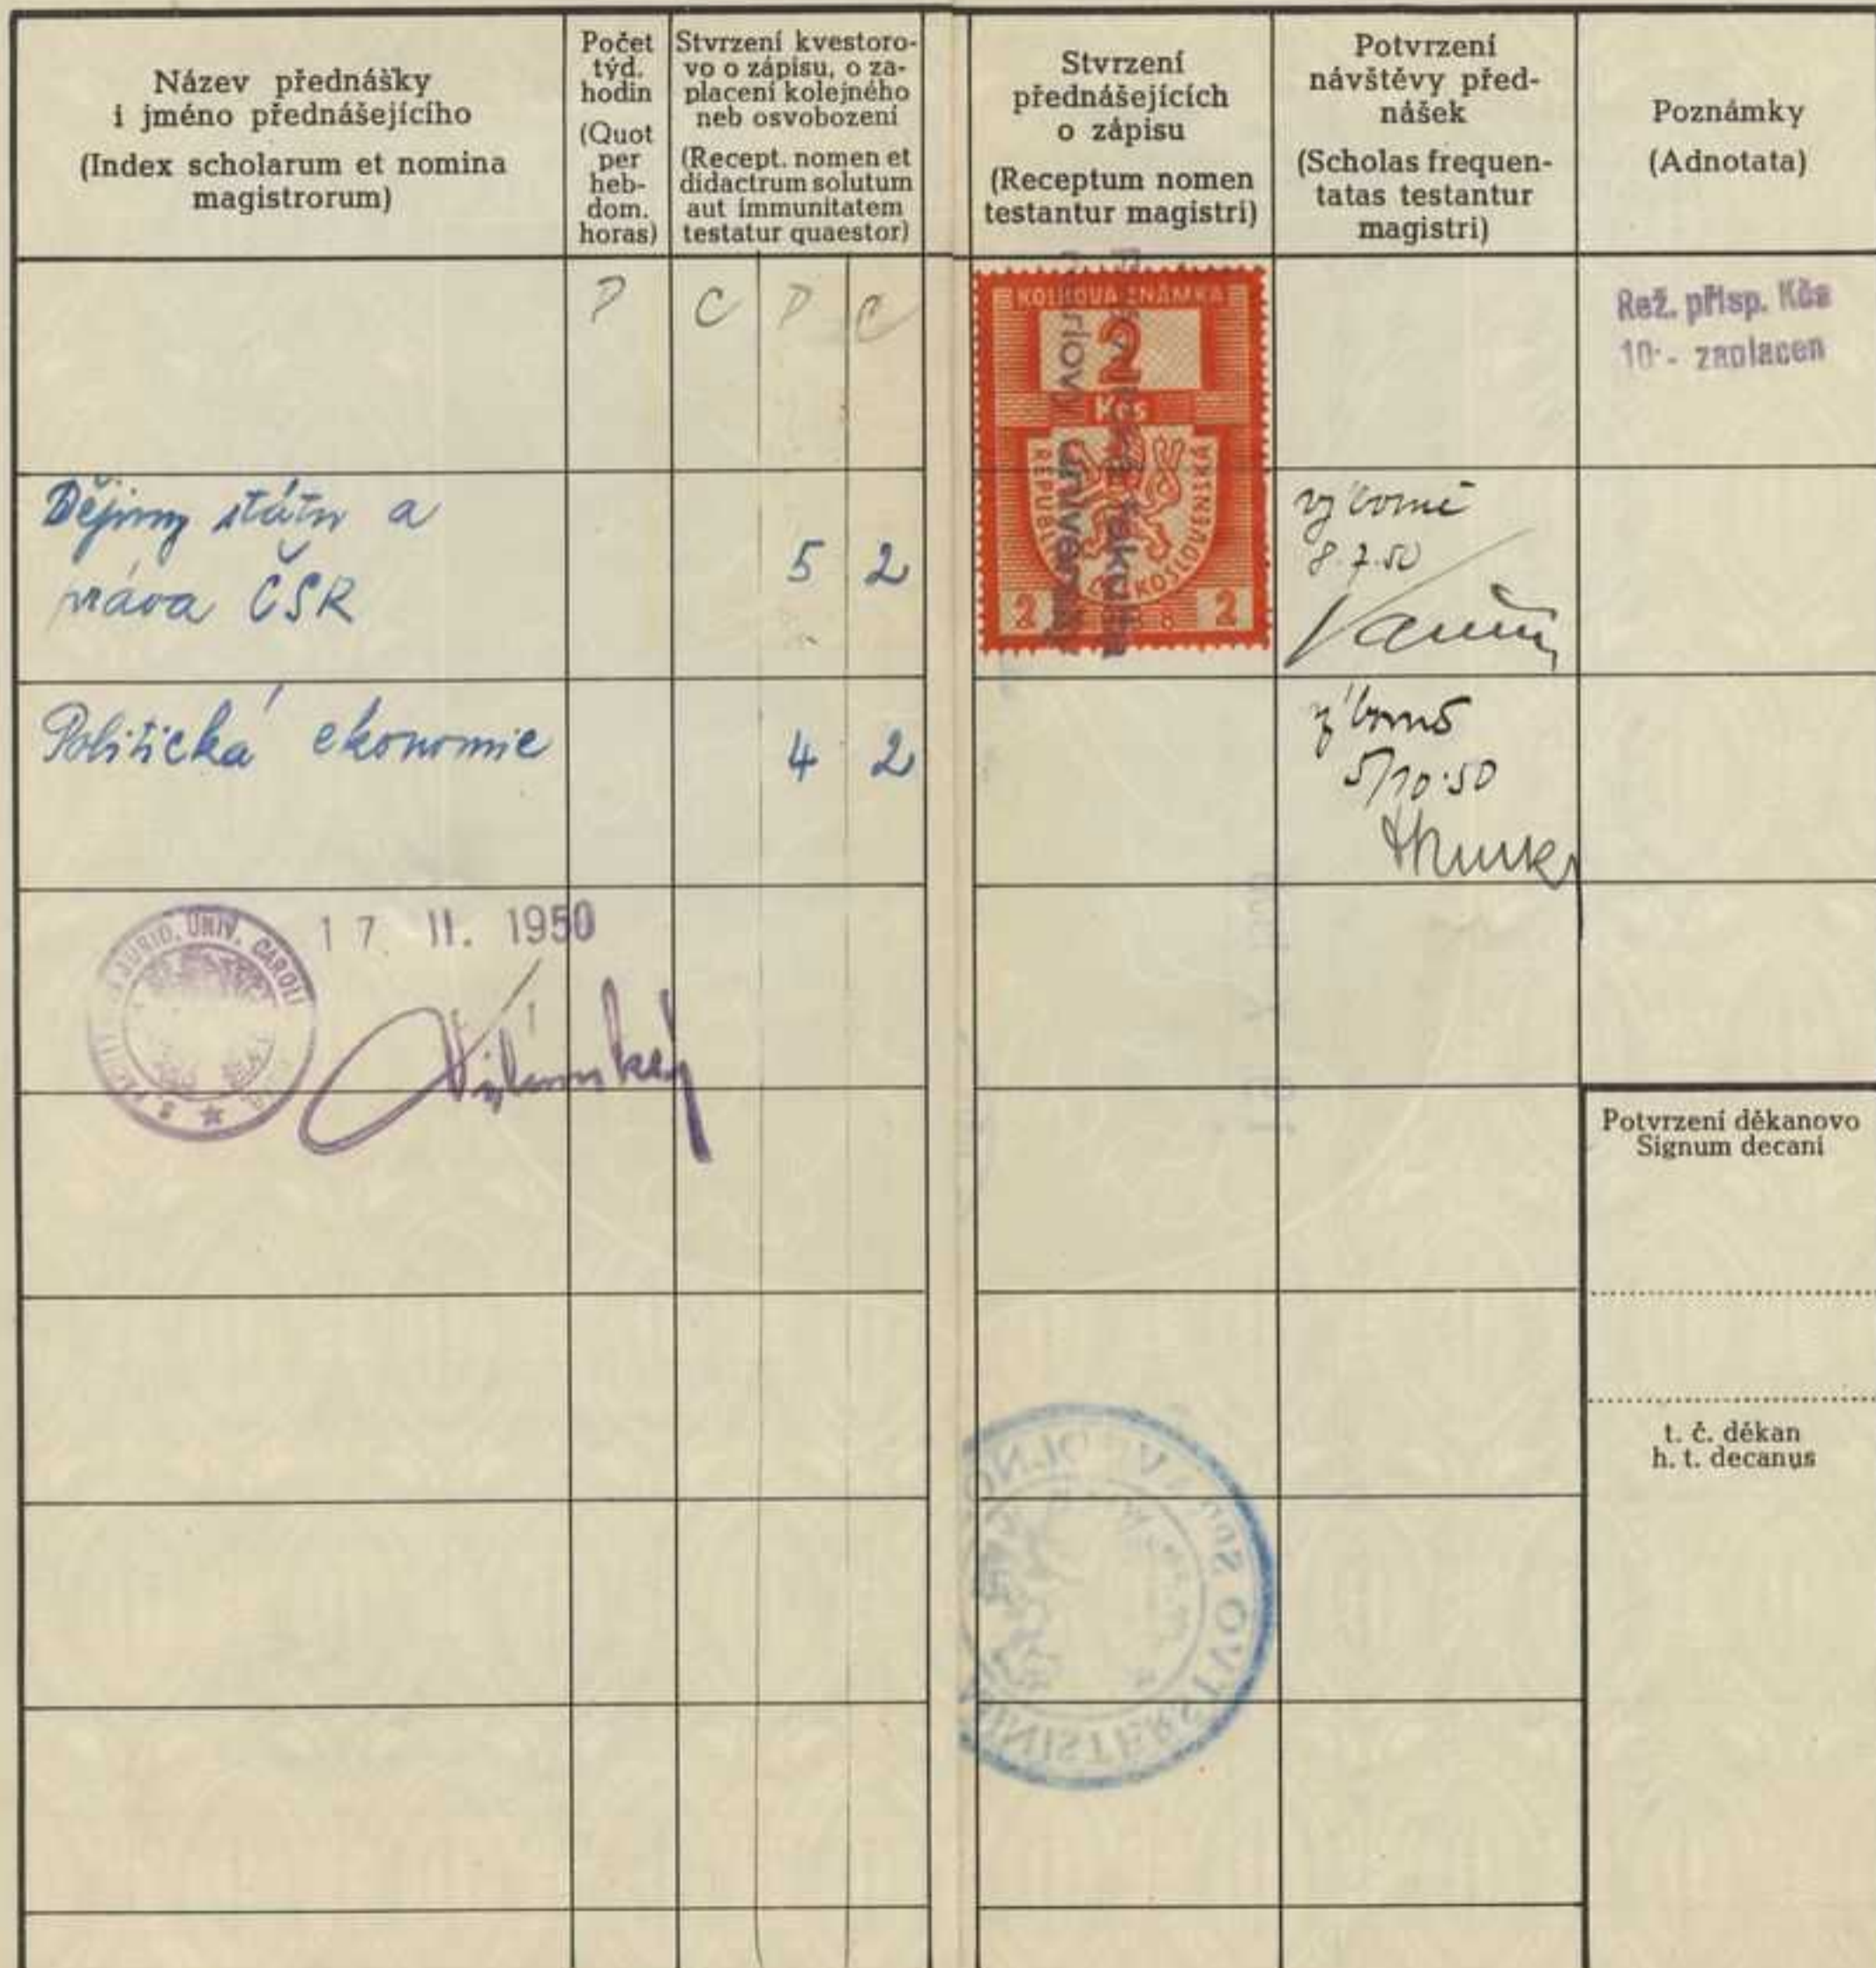 Název přednášky
i jméno přednášejícího
(Index scholarum et nomina
magistrorum)
Počet
týd.
hodin
(Quot
per
heb-
dom.
horas)
Stvrzení kvestoro-
vo o zápisu, o za-
placení kolejného
neb osvobození
(Recept. nomen et
didactrum solutum
aut immunitatem
testatur quaestor)
Stvrzení
přednášejících
o zápisu
(Receptum nomen
testantur magistri)
Potvrzení
návštěvy před-
nášek
(Scholas frequen-
tatas testantur
magistri)
Poznámky
(Adnotata)
P C P C
KOLKOVÁ ZNÁMKA
2
Kčs
REPUBLIKA ČESKOSLOVENSKÁ
2 2
Karlovy university
Rež. přisp. Kčs
10·- zaplacen
Dějiny státu a
práva ČSR
5 2
výborně
8.7.50
Politická ekonomie
4 2
výborně
5/10.50
JURID. UNIV. CAROLI
17 II. 1950
Potvrzení děkanovo
Signum decani
t. č. děkan
h. t. decanus